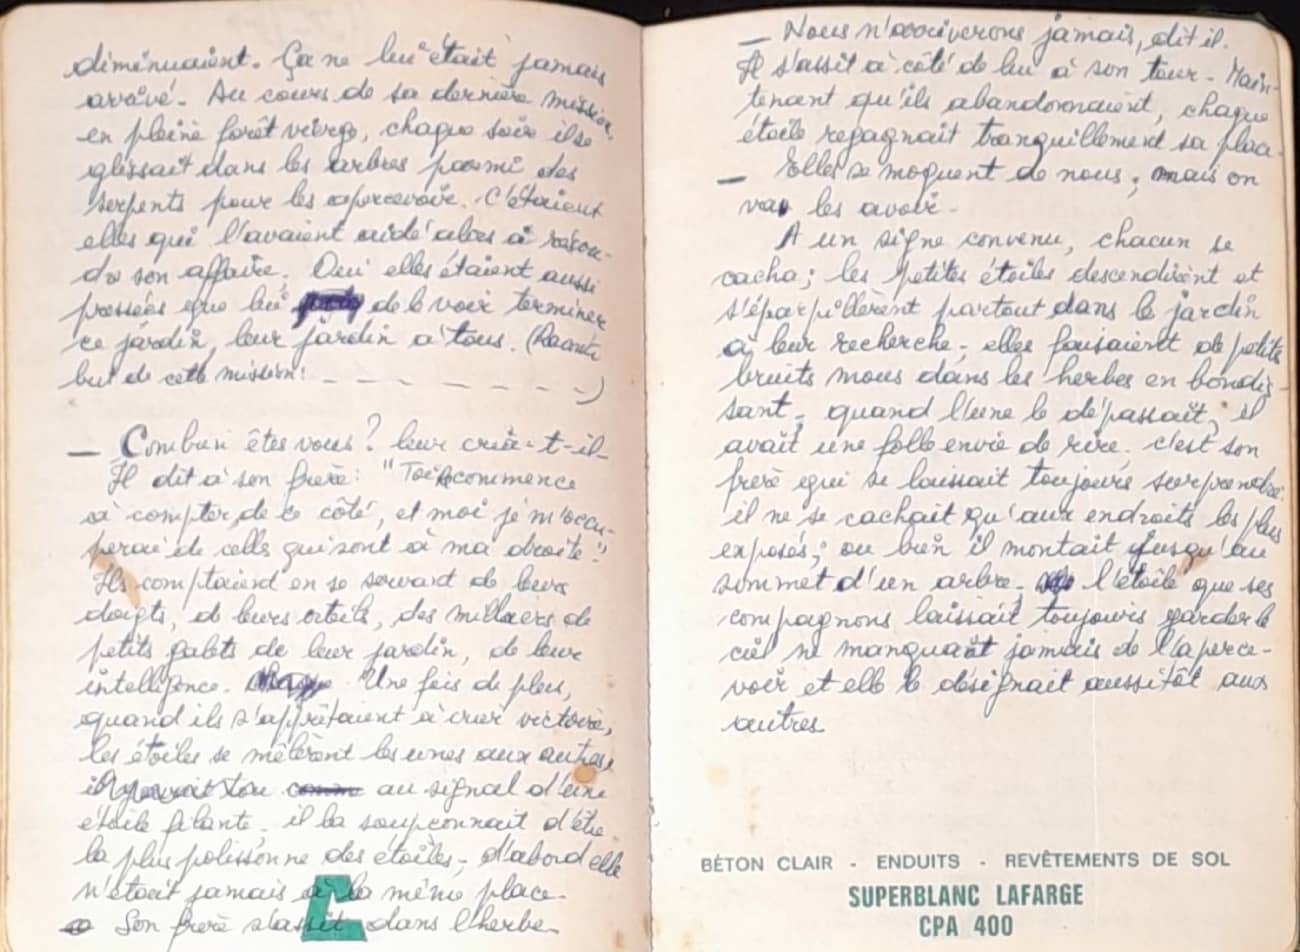 diménuaient. Ça ne lui était jamais
arrivé. Au cours de sa dernière mission,
en pleine forêt vierge, chaque soir il se
glissait dans les arbres parmi des
serpents pour les apercevoir. C'étaient
elles qui l'avaient aidé alors à résou-
dre son affaire. Oui elles étaient aussi
pressées que lui de le voir terminer
ce jardin, leur jardin à tous. (Raconter
but de cette mission: _ _ _ _ _ _ _)
— Combien êtes vous? leur cria-t-il-
Il dit à son frère: "Toi commence
à compter de ce côté, et moi je m'occu-
perai de celles qui sont à ma droite".
Ils comptaient en se servant de leurs
doigts, de leurs orteils, des milliers de
petits galets de leur jardin, de leur
intelligence. Une fois de plus,
quand ils s'apprêtaient à crier victoire,
les étoiles se mêlèrent les unes aux autres,
au signal d'une
étoile filante. il la soupçonnait d'être
la plus polissonne des étoiles, d'abord elle
n'était jamais à la même place.
Son frère s'assit dans l'herbe.
— Nous n'arriverons jamais, dit il.
Il s'assit à côté de lui à son tour - Main-
tenant qu'ils abandonnaient, chaque
étoile regagnait tranquillement sa place.
— Elles se moquent de nous, mais on
va les avoir.
A un signe convenu, chacun se
cacha; les petites étoiles descendirent et
s'éparpillèrent partout dans le jardin
à leur recherche, elles faisaient de petits
bruits mous dans les herbes en bondis-
sant, quand l'une le dépassait, il
avait une folle envie de rire. c'est son
frère qui se laissait toujours surprendre:
il ne se cachait qu'aux endroits les plus
exposés; ou bien il montait jusqu'au
sommet d'un arbre. l'étoile que ses
compagnons laissait toujours garder le
ciel ne manquait jamais de l'aperce-
voir et elle le désignait aussitôt aux
autres.
BÉTON CLAIR - ENDUITS - REVÊTEMENTS DE SOL
SUPERBLANC LAFARGE
CPA 400